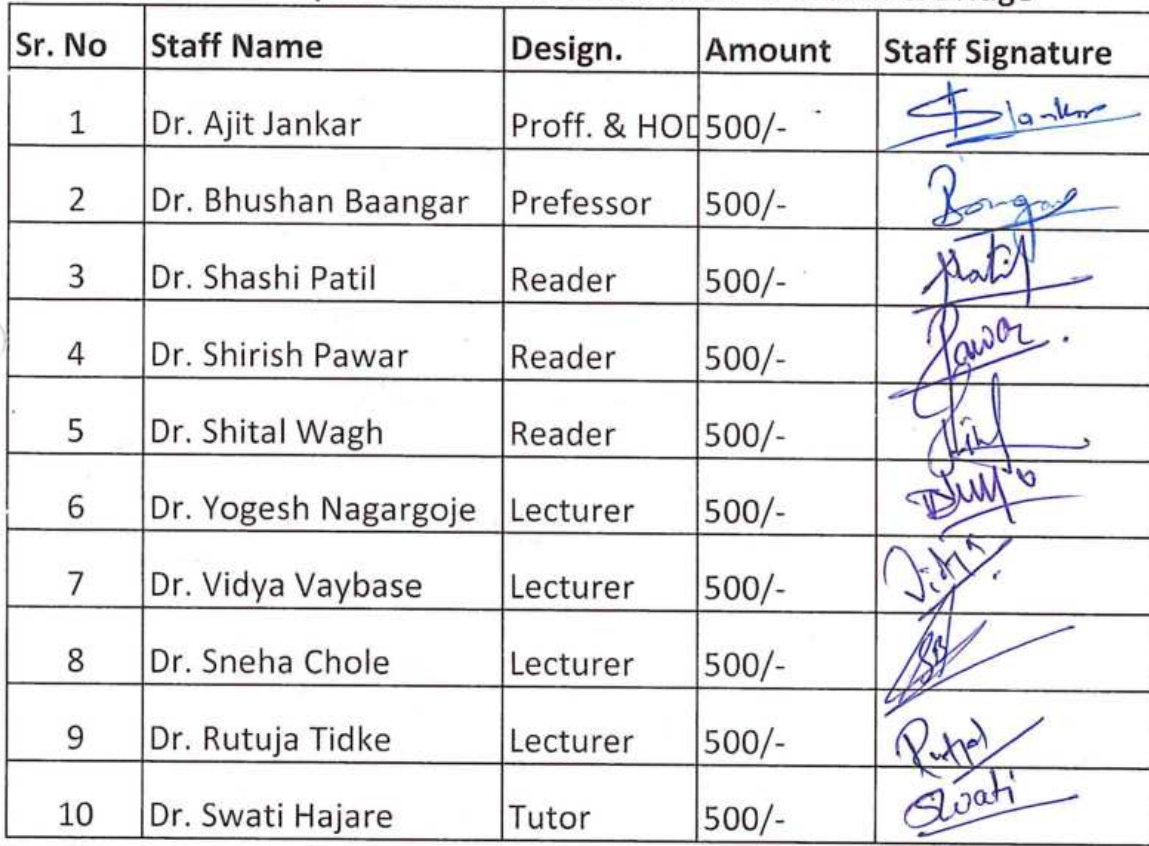 Sr. No Staff Name Design. Amount Staff Signature
1 Dr. Ajit Jankar Proff. & HOD 500/- Jankar
2 Dr. Bhushan Baangar Prefessor 500/-
3 Dr. Shashi Patil Reader 500/- Patil
4 Dr. Shirish Pawar Reader 500/- Pawar
5 Dr. Shital Wagh Reader 500/-
6 Dr. Yogesh Nagargoje Lecturer 500/-
7 Dr. Vidya Vaybase Lecturer 500/- Vidya
8 Dr. Sneha Chole Lecturer 500/-
9 Dr. Rutuja Tidke Lecturer 500/-
10 Dr. Swati Hajare Tutor 500/- Swati